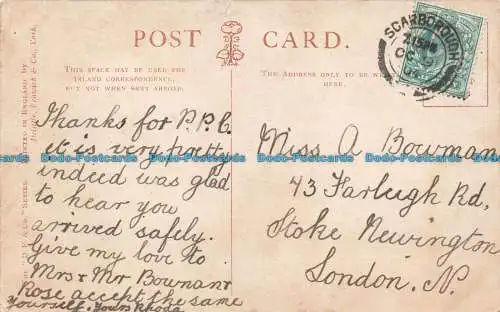 POST CARD.
THIS SPACE MAY BE USED FOR
INLAND CORRESPONDENCE,
BUT NOT WHEN SENT ABROAD.
THE ADDRESS ONLY TO BE
HERE.
SCARBOROUGH
Thanks for P.P.C.
it is very pretty
indeed was glad
to hear you
arrived safely.
Give my love to
Mrs & Mr Bowman
Rose accept the same
yourself. Yours Rhoda
Miss A Bowman
43 Farleigh Rd,
Stoke Newington
London. N.
Dodo-Postcards Dodo-Postcards Dodo-Postcards Dodo-Postcards Dodo-Postcards